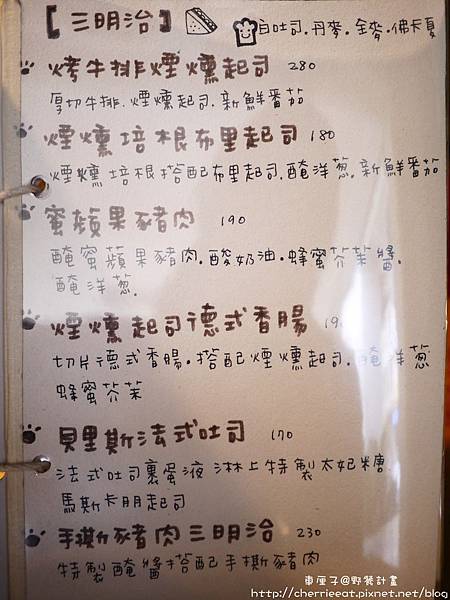 【三明治】
白吐司.丹麥.全麥.佛卡夏
烤牛排煙燻起司 280
厚切牛排.煙燻起司.新鮮番茄
煙燻培根布里起司 180
煙燻培根搭配布里起司.醃洋蔥.新鮮番茄
蜜蘋果豬肉 190
醃蜜蘋果豬肉.酸奶油.蜂蜜芥茉醬.
醃洋蔥.
煙燻起司德式香腸
切片德式香腸.搭配煙燻起司.醃洋蔥
蜂蜜芥茉
貝里斯法式吐司 170
法式吐司裹蛋液 淋上特製太妃糖
馬斯卡朋起司
手撕豬肉三明治 230
特製醃醬搭配手撕豬肉
車厘子@野餐計畫
http://cherrieeat.pixnet.net/blog